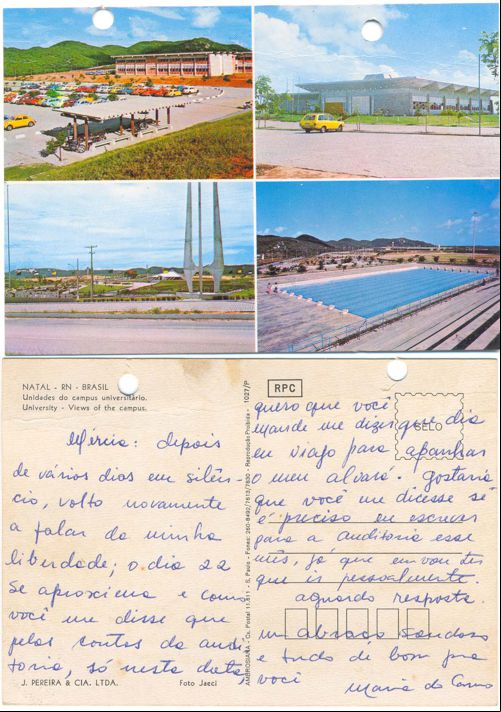 NATAL - RN - BRASIL
Unidades do campus universitário.
University - Views of the campus.
Mércia: depois
de vários dias em silên-
cio, volto novamente
a falar da minha
liberdade; o dia 22
se aproxima e como
você me disse que
pelas contas da audi-
toria, só nesta data
J. PEREIRA & CIA. LTDA.
Foto Jaeci
AMBROSIANA - Cx. Postal 11.811 - S. Paulo - Fones: 260-8492/7613/7630 - Reprodução Proibida - 1027/P
RPC
SELO
quero que você
mande me dizer que dia
eu viajo para apanhar
o meu alvará. Gostaria
que você me dicesse se
é preciso eu escrever
para a auditoria esse
mês, já que eu vou ter
que ir pessoalmente.
aguardo resposta.
um abraço saudoso
e tudo de bom pra
você
Maria do Carmo